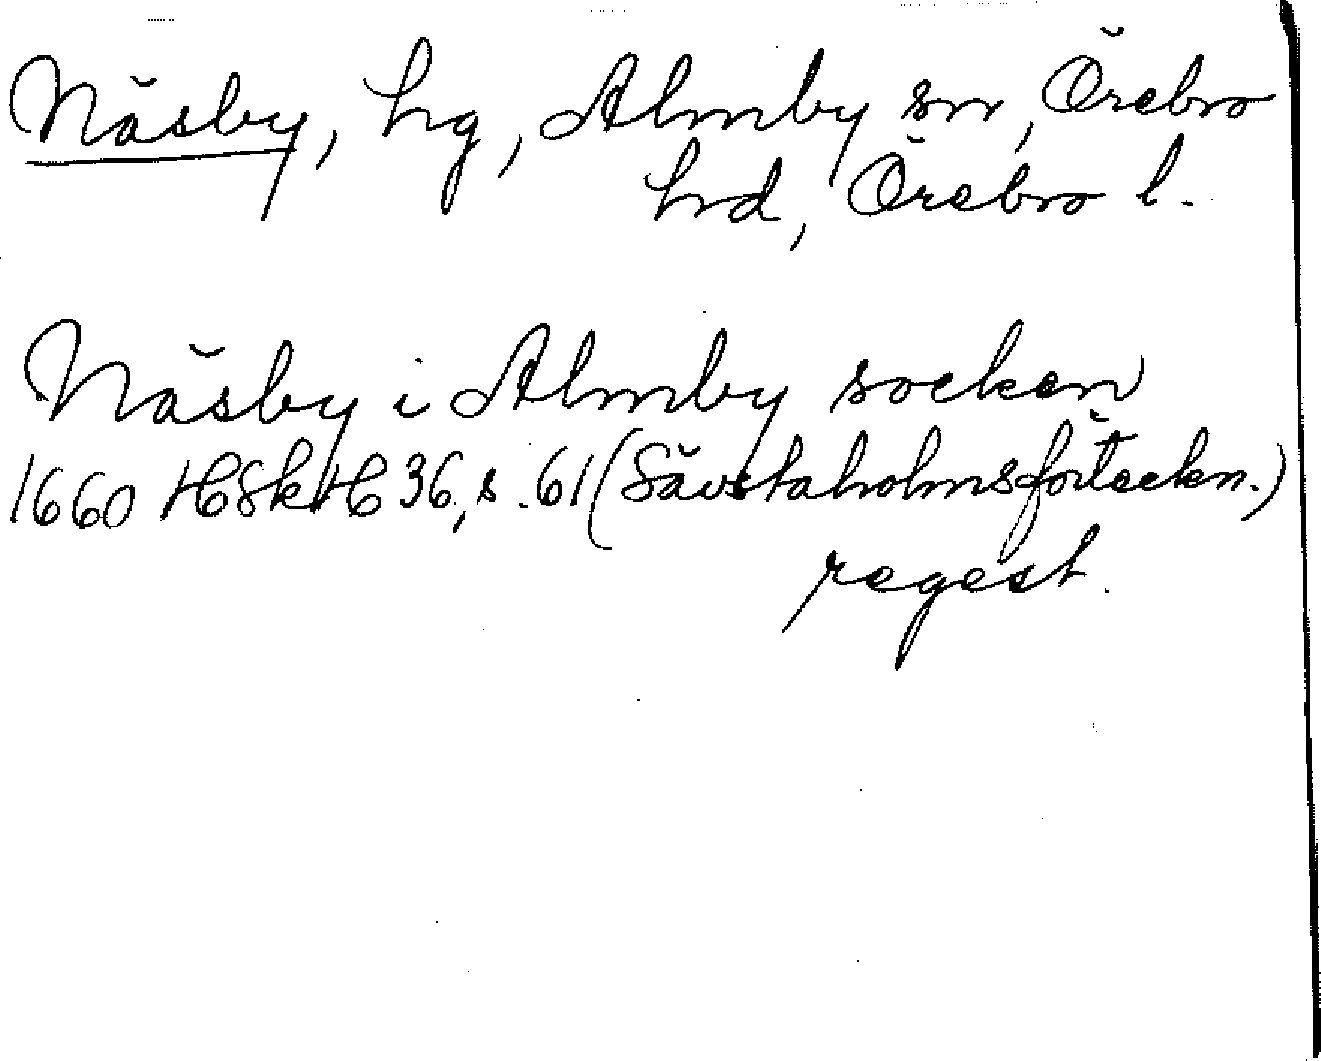 Näsby, hg, Almby sn, Örebro
hrd, Örebro l.
Näsby i Almby socken
1660 HSkH 36, s. 61 (Sävstaholmsförteckn.)
regest.